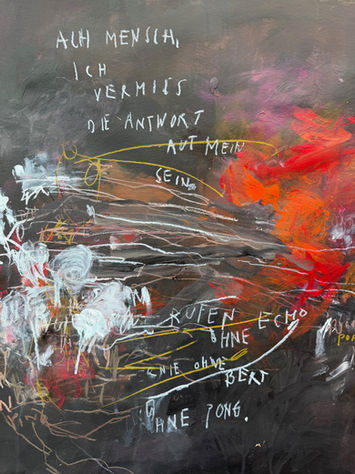 ACH MENSCH,
ICH
VERMISS
DIE ANTWORT
AUF MEIN
SEIN.
RUFEN
ECHO
OHNE
OHNE
BERT
OHNE PONG.